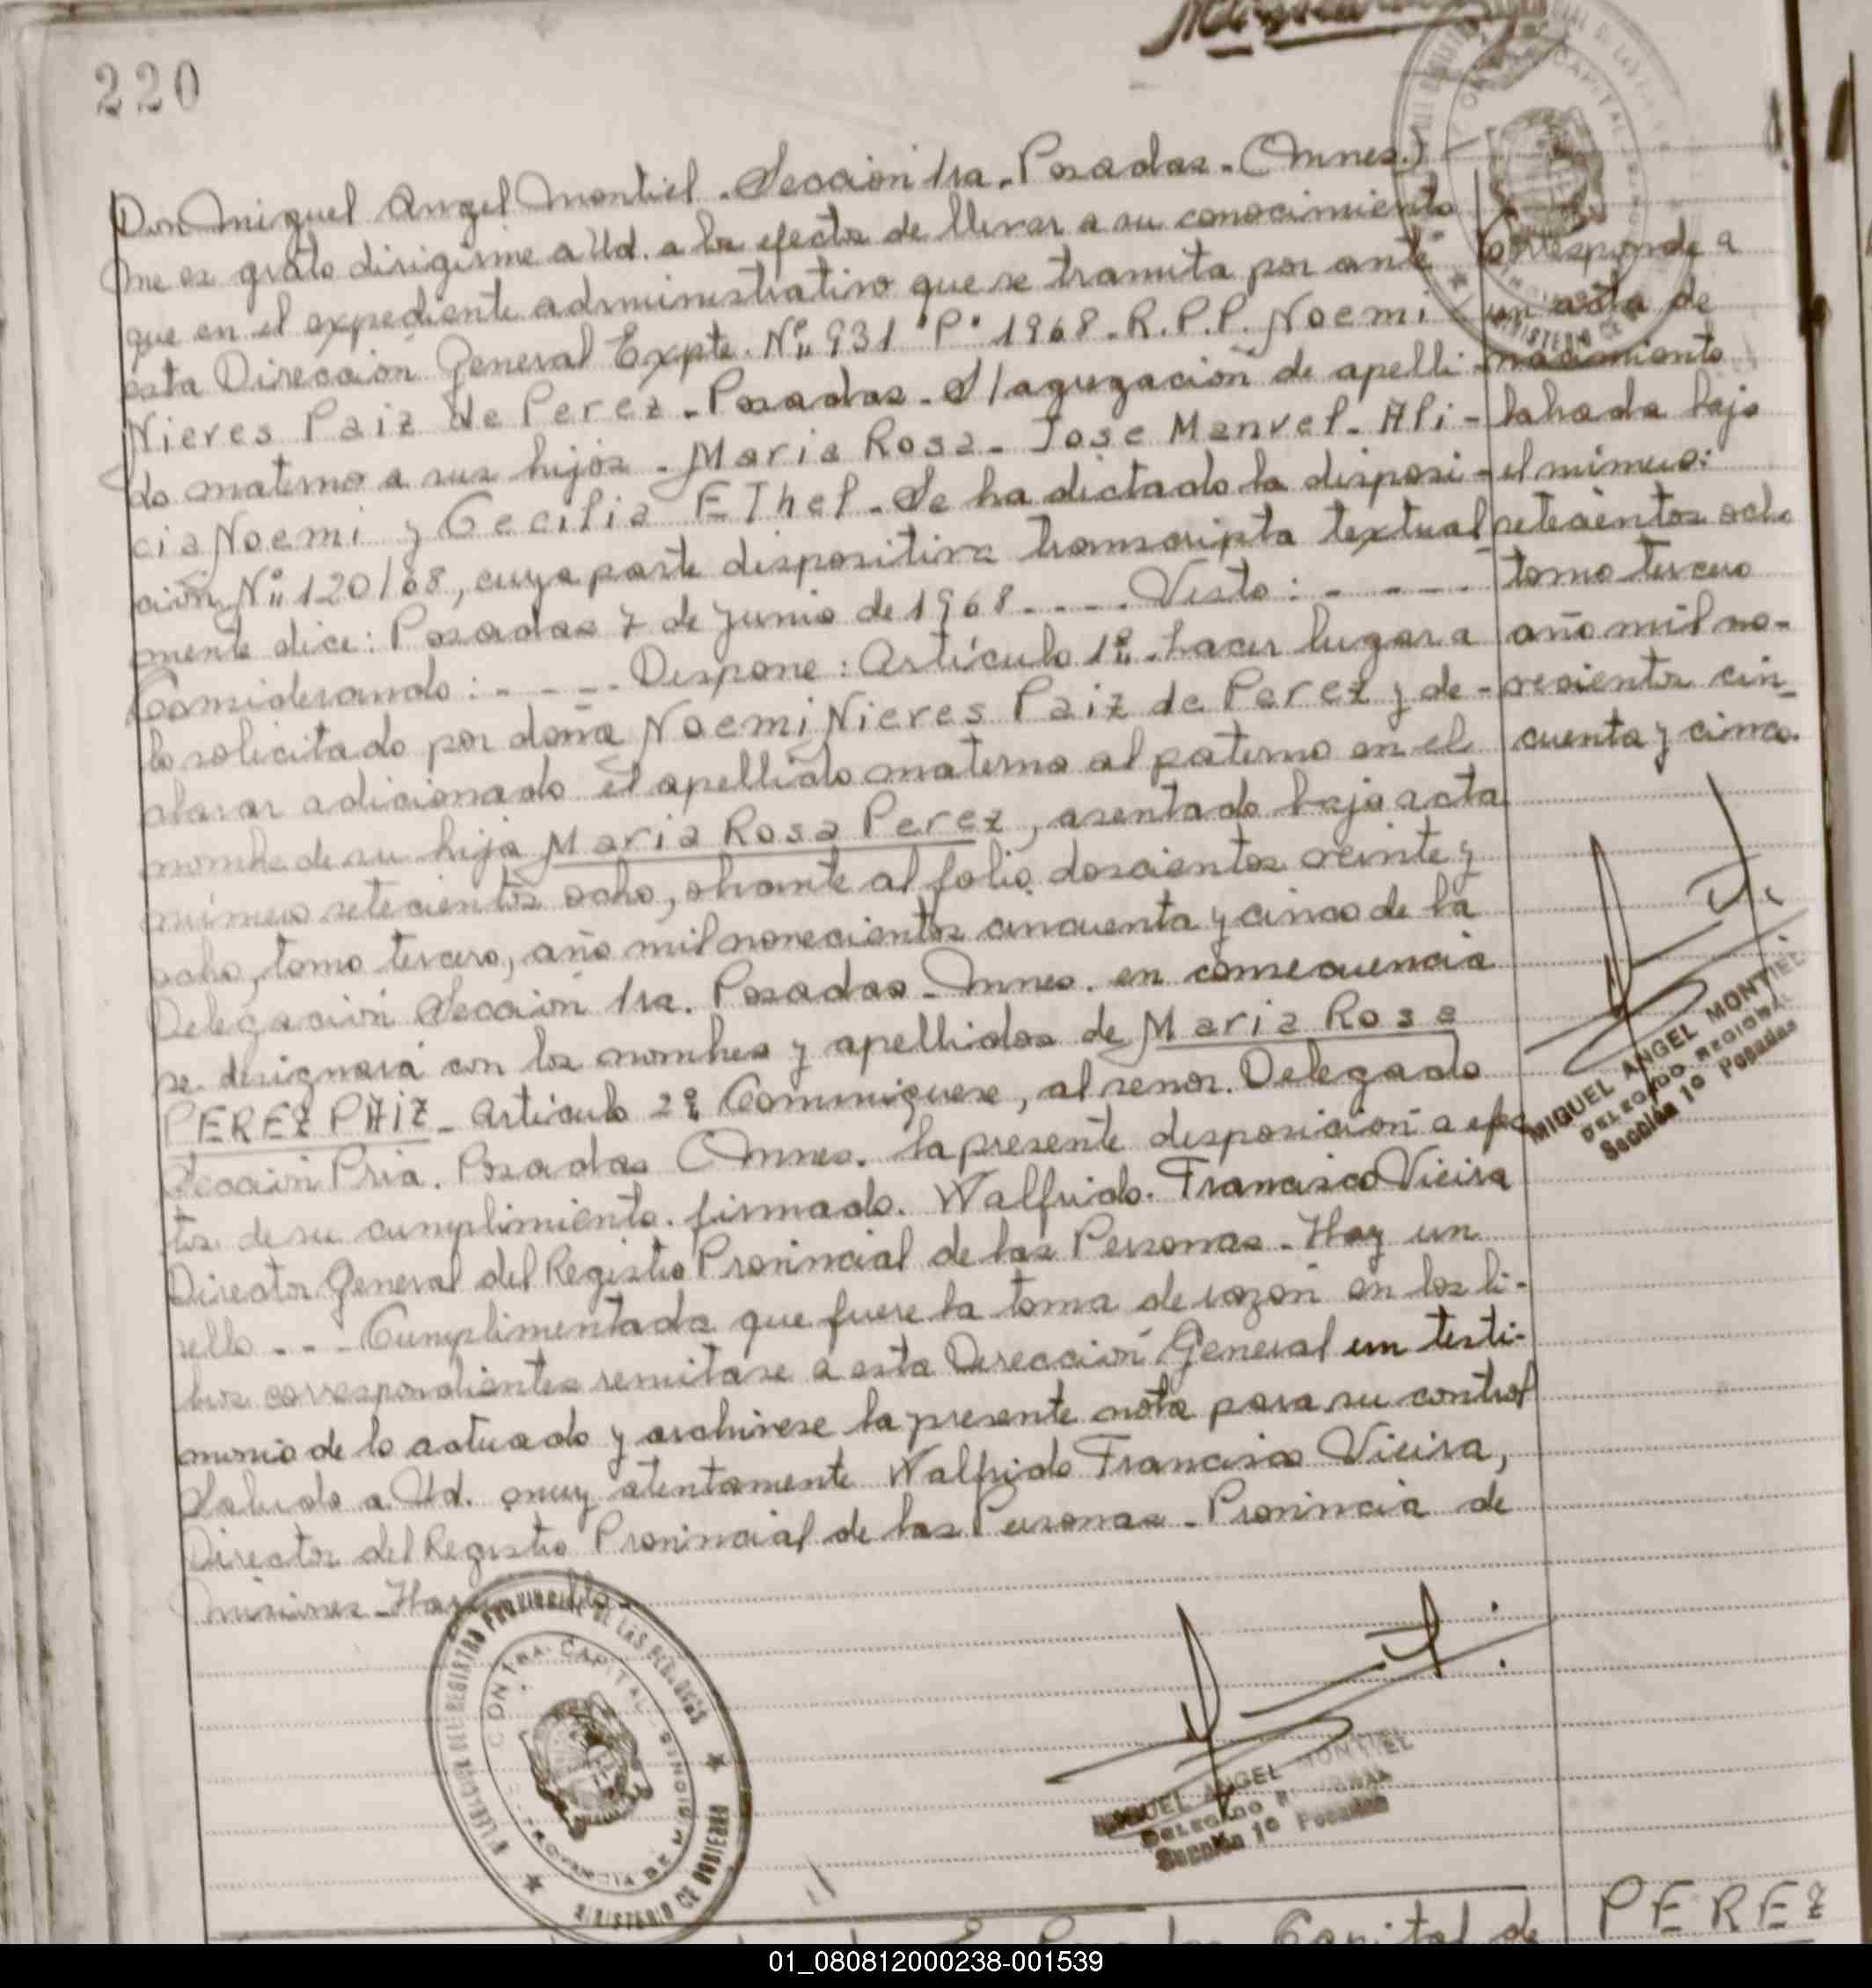 220
Don Miguel Angel Montiel - Sección 1ra - Posadas - (Mnes.)
Me es grato dirigirme a Ud. a los efectos de llevar a su conocimiento
que en el expediente administrativo que se tramita por ante
esta Dirección General Expte. Nº 931 "P" 1968 - R.P.P. Noemi
Nieves Paiz de Perez - Posadas - S/agregación de apelli-
do materno a sus hijos - Maria Rosa - Jose Manuel - Ali-
cia Noemi y Cecilia EThel - Se ha dictado la disposi-
ción Nº 120/68, cuya parte dispositiva transcripta textual-
mente dice: Posadas 7 de Junio de 1968 - - - - Visto: - - - - -
Considerando: - - - - Dispone: Artículo 1º - hacer lugar a
lo solicitado por doña Noemi Nieves Paiz de Perez y de-
clarar adicionado el apellido materno al paterno en el
nombre de su hija Maria Rosa Perez, asentado bajo acta
número setecientos ocho, obrante al folio doscientos veinte y
ocho, tomo tercero, año mil novecientos cincuenta y cinco de la
Delegación Sección 1ra. Posadas - Mnes. en consecuencia
se designará con los nombres y apellidos de Maria Rosa
PEREZ PAIZ - Artículo 2º Comuniquese, al señor Delegado
Sección Pria. Posadas Mnes. la presente disposición a efec
tos de su cumplimiento. firmado. Walfrido Francisco Vieira
Director General del Registro Provincial de las Personas - Hay un
sello - - - Cumplimentada que fuere la toma de razón en los li-
bros correspondientes remitase a esta Dirección General un testi-
monio de lo actuado y archivese la presente nota para su control
Saludo a Ud. muy atentamente Walfrido Francisco Vieira,
Director del Registro Provincial de las Personas - Provincia de
Misiones - Hay
Corresponde a
un acta de
nacimiento
labrada bajo
el número:
setecientos ocho
tomo tercero
año mil no-
vecientos cin-
cuenta y cinco.
MIGUEL ANGEL MONTIEL
DELEGADO REGIONAL
Sección 1º Posadas
DEL REGISTRO PROVINCIAL DE LAS PERSONAS
CAPITAL
MINISTERIO DE GOBIERNO
MIGUEL ANGEL MONTIEL
DELEGADO REGIONAL
Sección 1º Posadas
Capital de
PEREZ
01_080812000238-001539